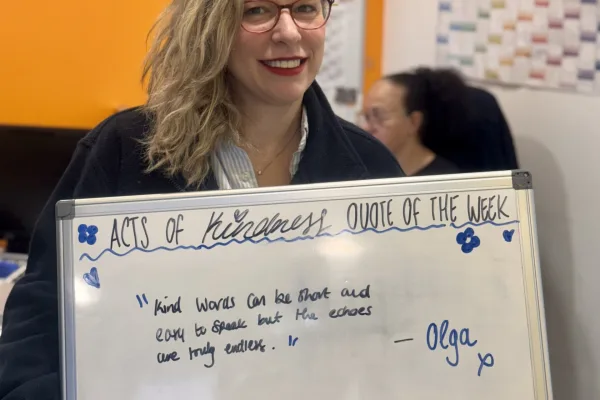 ACTS OF Kindness QUOTE OF THE WEEK
"Kind words can be short and
easy to speak but the echoes
are truly endless."
— Olga
x